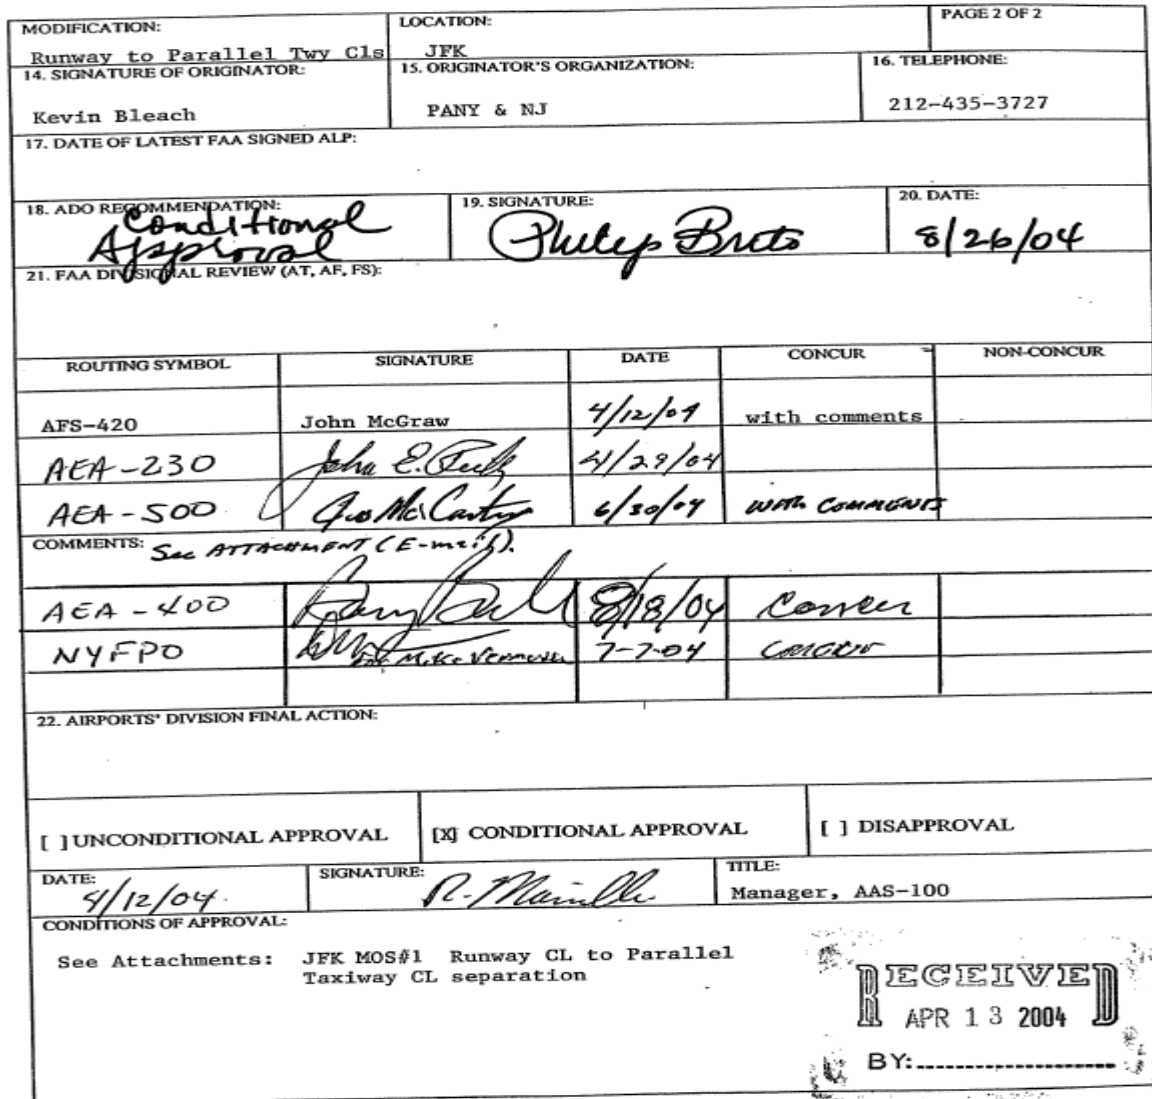 MODIFICATION:
LOCATION:
PAGE 2 OF 2
Runway to Parallel Twy Cls
JFK
14. SIGNATURE OF ORIGINATOR:
15. ORIGINATOR'S ORGANIZATION:
16. TELEPHONE:
Kevin Bleach
PANY & NJ
212-435-3727
17. DATE OF LATEST FAA SIGNED ALP:
18. ADO RECOMMENDATION:
19. SIGNATURE:
20. DATE:
Conditional
Approval
Philip Brito
8/26/04
21. FAA DIVISIONAL REVIEW (AT, AF, FS):
ROUTING SYMBOL
SIGNATURE
DATE
CONCUR
NON-CONCUR
AFS-420
John McGraw
4/12/04
with comments
AEA-230
John E.
4/29/04
AEA-500
6/30/04
WITH COMMENTS
COMMENTS: See ATTACHMENT (E-mail).
AEA-400
8/18/04
Concur
NYFPO
for Mike
7-7-04
Concur
22. AIRPORTS' DIVISION FINAL ACTION:
[ ] UNCONDITIONAL APPROVAL
[X] CONDITIONAL APPROVAL
[ ] DISAPPROVAL
DATE:
SIGNATURE:
TITLE:
4/12/04.
Manager, AAS-100
CONDITIONS OF APPROVAL:
See Attachments: JFK MOS#1 Runway CL to Parallel
Taxiway CL separation
RECEIVED
APR 13 2004
BY: